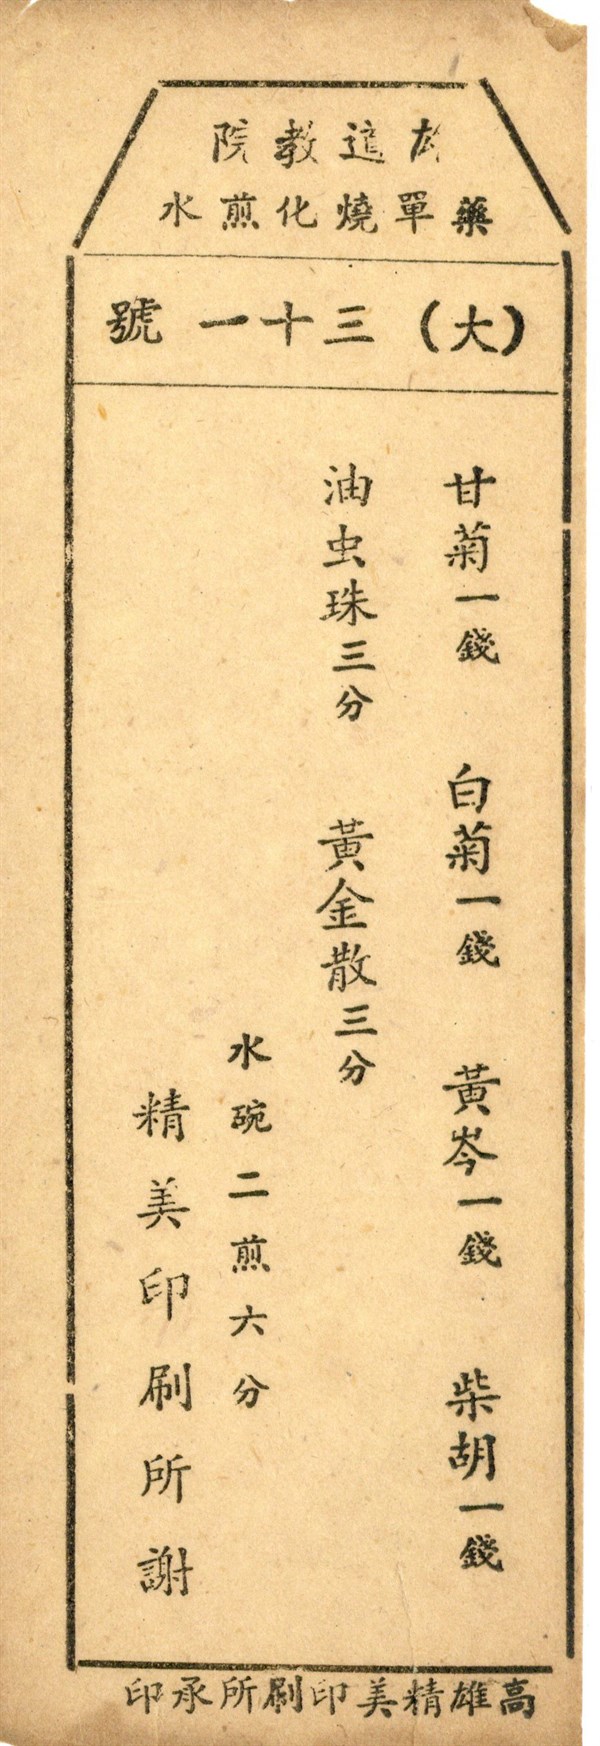 道教院
藥單燒化煎水
(大)三十一號
甘菊一錢 白菊一錢 黃岑一錢 柴胡一錢
油虫珠三分 黃金散三分
水碗二煎六分
精美印刷所謝
高雄精美印刷所承印